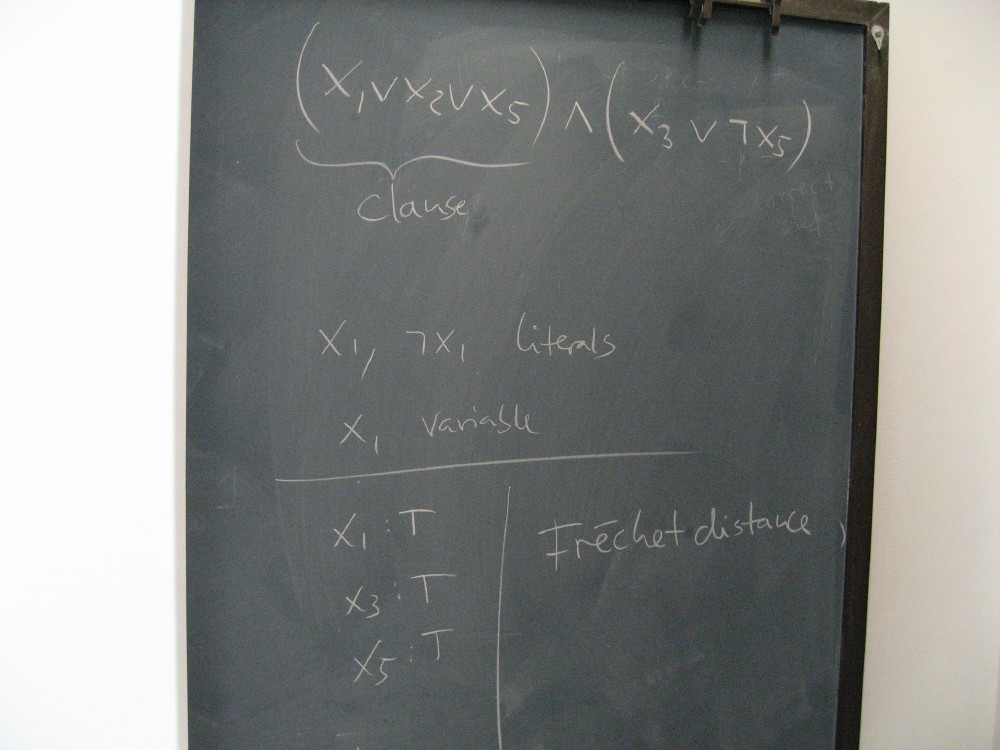 (X₁ ∨ X₂ ∨ X₅) ∧ (X₃ ∨ ¬X₅)
clause
X₁, ¬X₁ literals
X₁ variable
X₁ : T
X₃ : T
X₅ : T
Fréchet distance